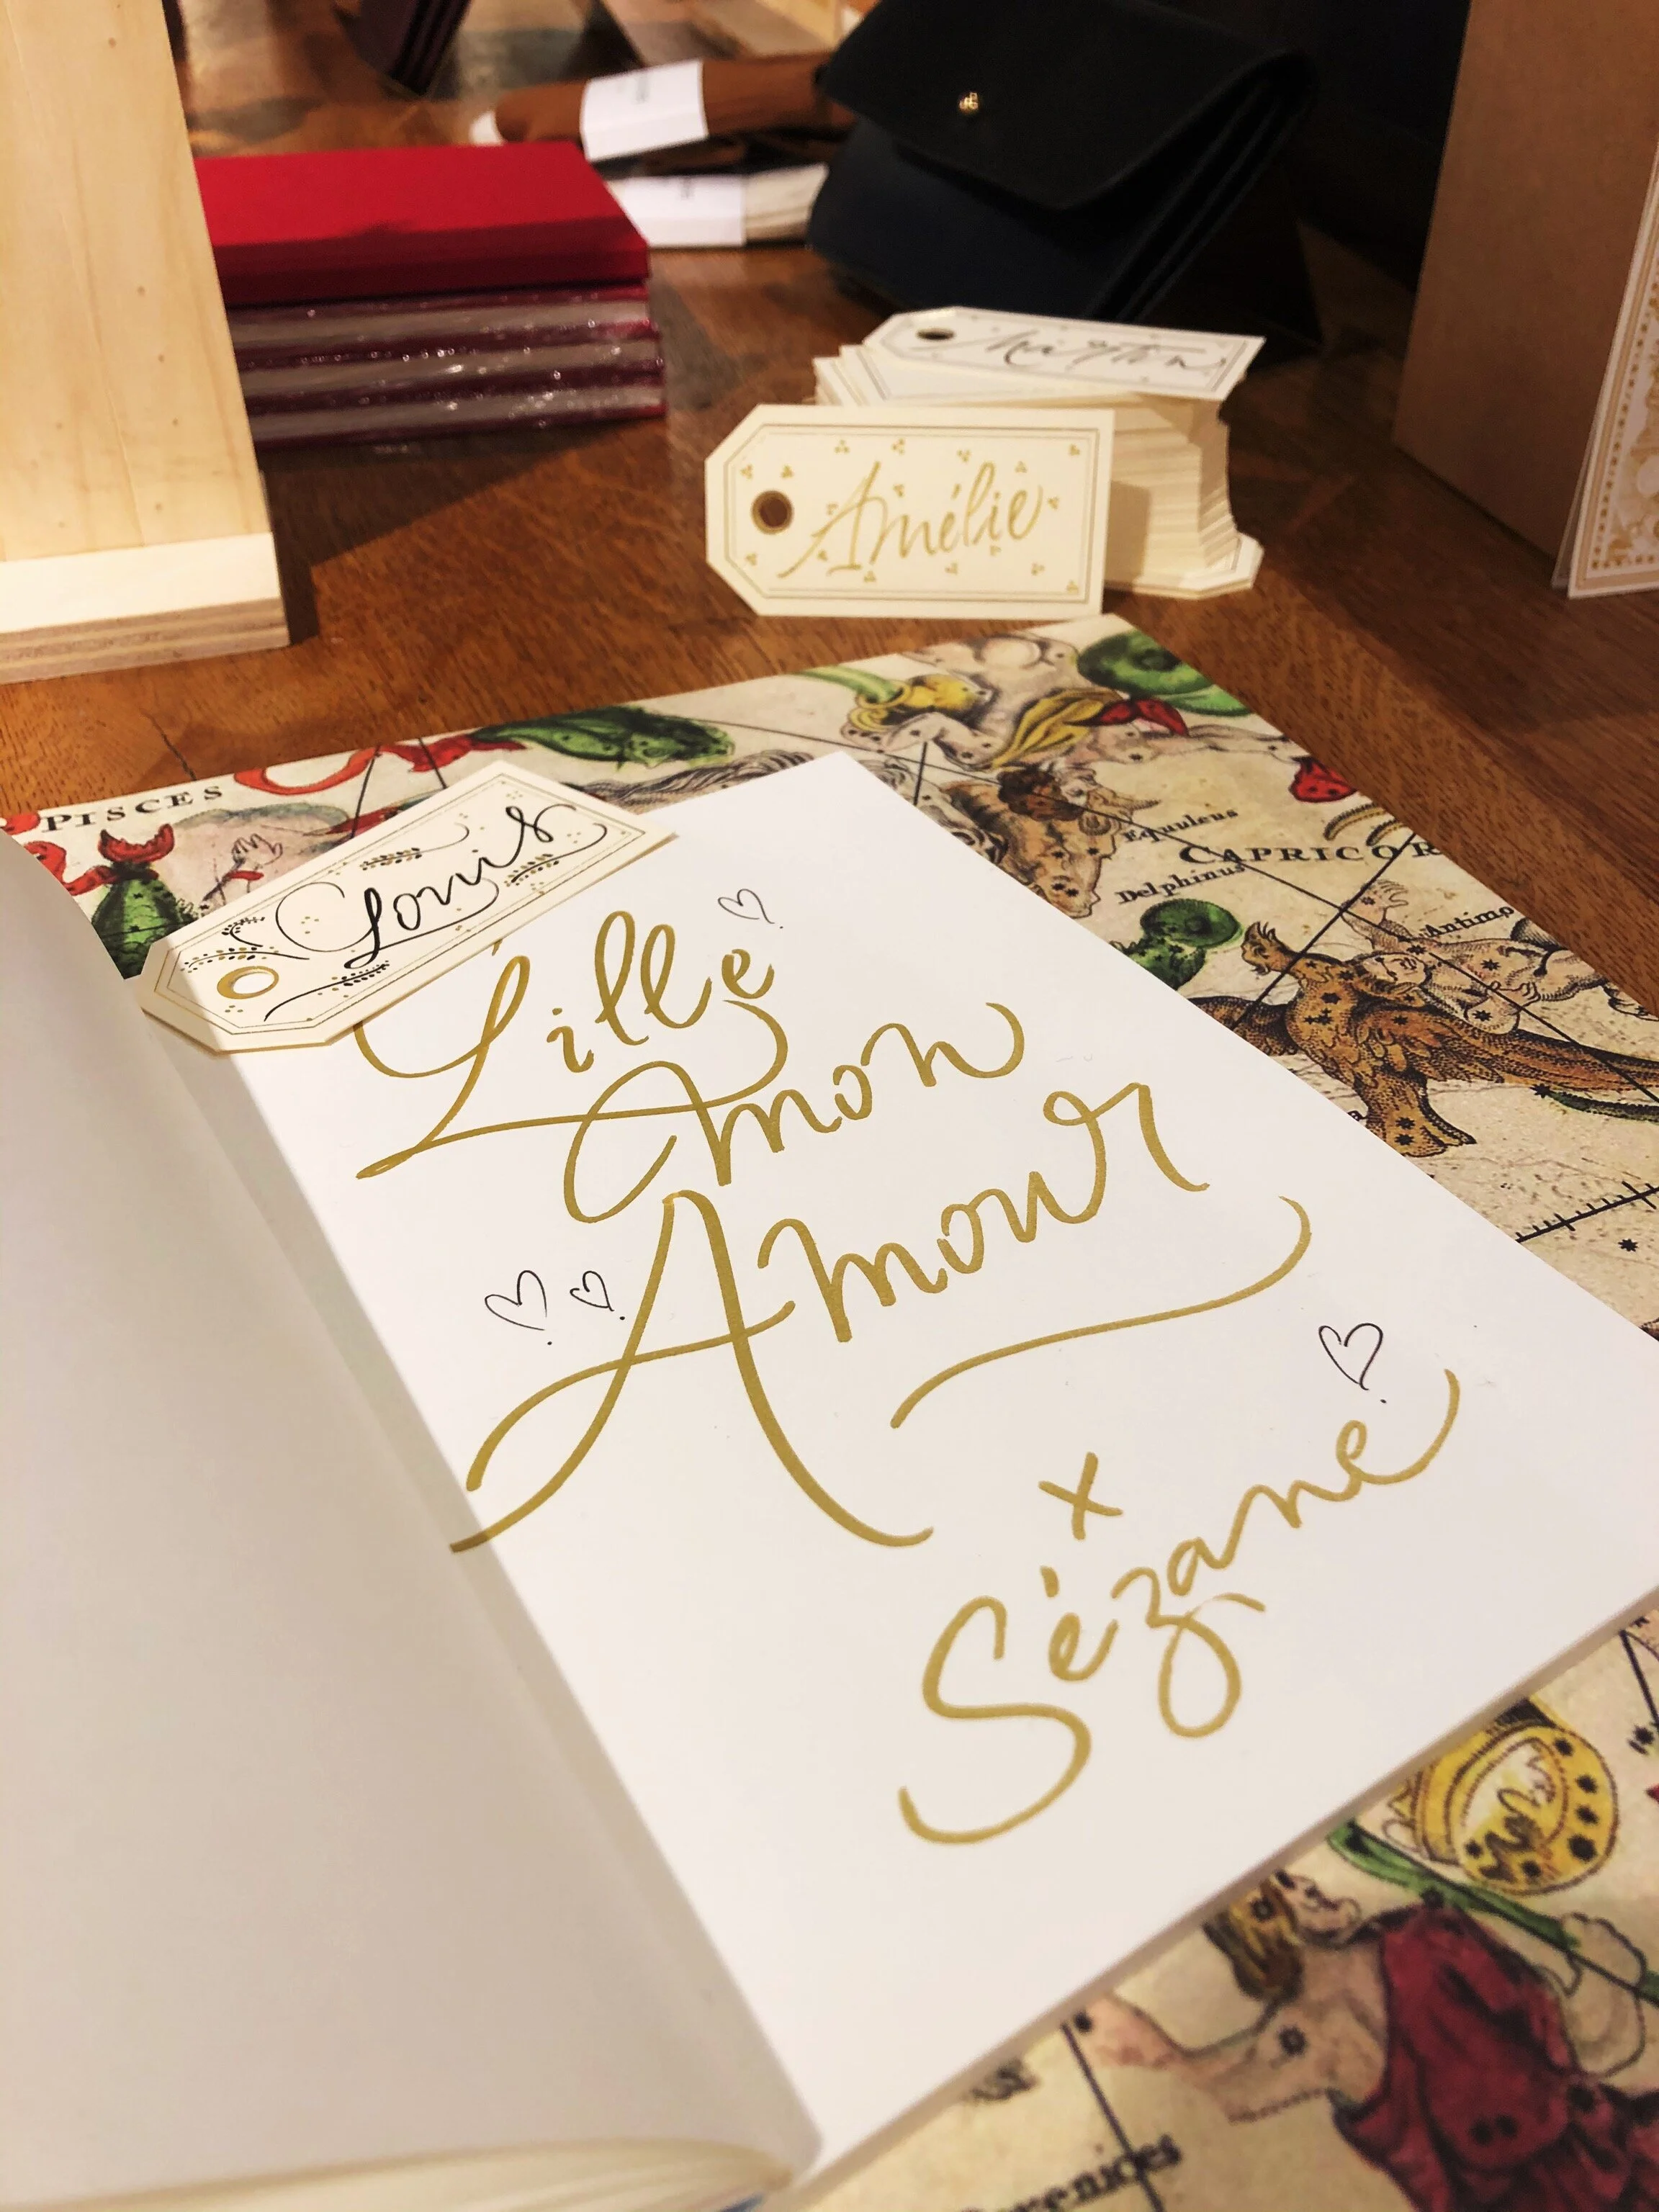 Amélie
PISCES
Equuleus
CAPRICOR
Delphinus
Antino
Louis
Lille
mon
Amour
x
Sézane